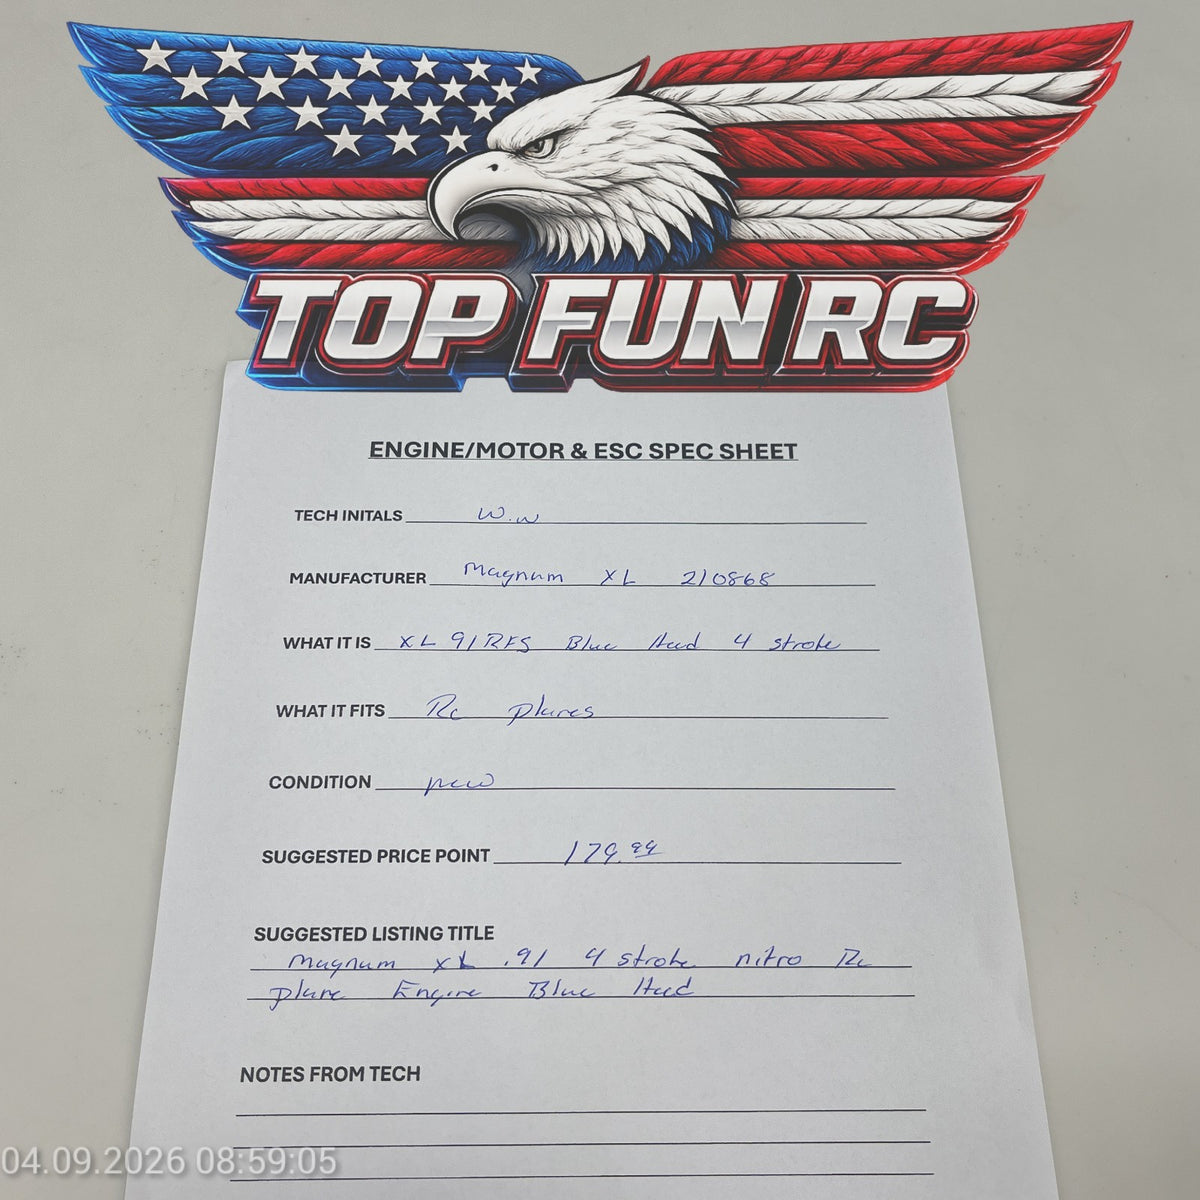 TOP FUN RC
ENGINE/MOTOR & ESC SPEC SHEET
TECH INITALS W.W
MANUFACTURER Magnum XL 210868
WHAT IT IS XL 91RFS Blue Head 4 stroke
WHAT IT FITS Rc planes
CONDITION new
SUGGESTED PRICE POINT 179.99
SUGGESTED LISTING TITLE
Magnum XL .91 4 stroke nitro Rc
plane Engine Blue Head
NOTES FROM TECH
04.09.2026 08:59:05